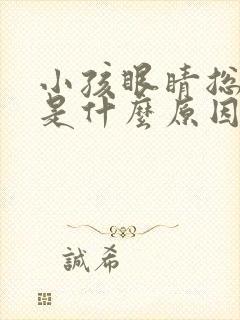 小孩眼睛总
是什麼原因
誠希